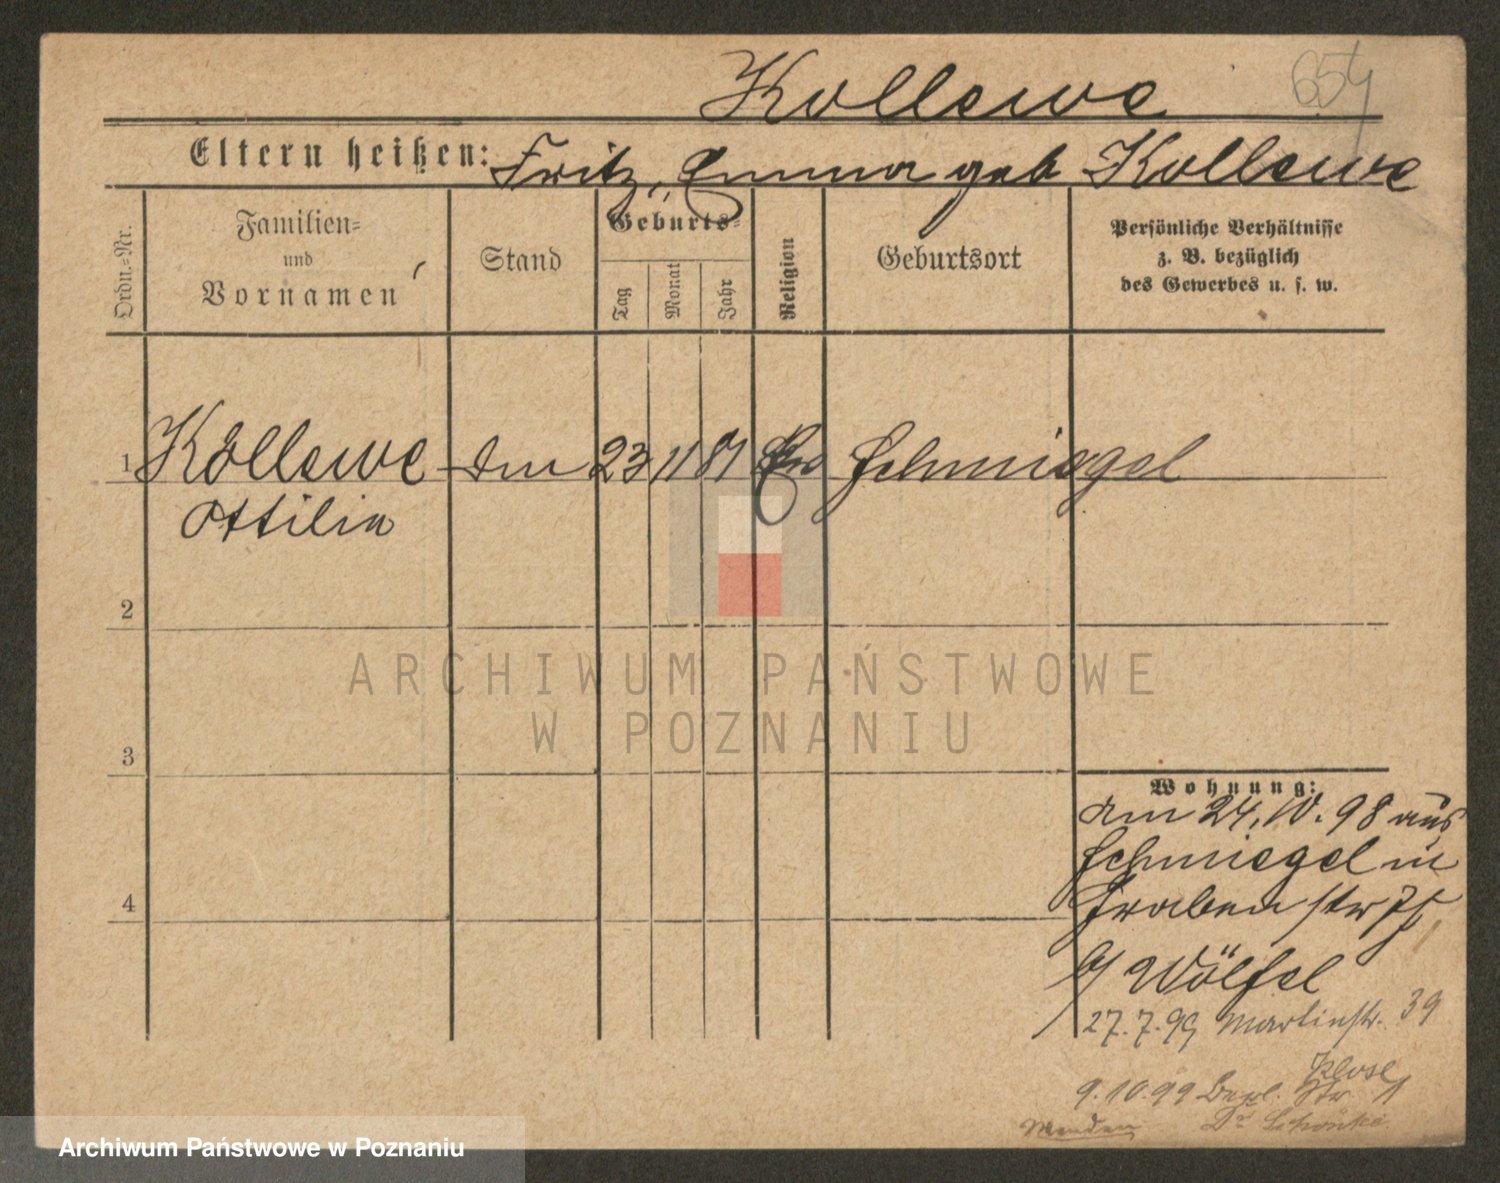 Kollewe 654
Eltern heißen: Fritz, Emma geb Kollewe
Ordn.-Nr.
Familien-
und
Vornamen
Stand
Geburts-
Tag
Monat
Jahr
Religion
Geburtsort
Persönliche Verhältnisse
z. B. bezüglich
des Gewerbes u. s. w.
1 Kollewe 23 11 81 Ev Schmiegel
Ottilie
2
ARCHIWUM PAŃSTWOWE
W POZNANIU
3
Wohnung:
am 24. 10. 98 aus
Schmiegel in
Grabenstr
b/ Wölfel
27.7.99 Martinstr. 39
Klose
9.10.99 Berl. Str 1
Dr
Archiwum Państwowe w Poznaniu